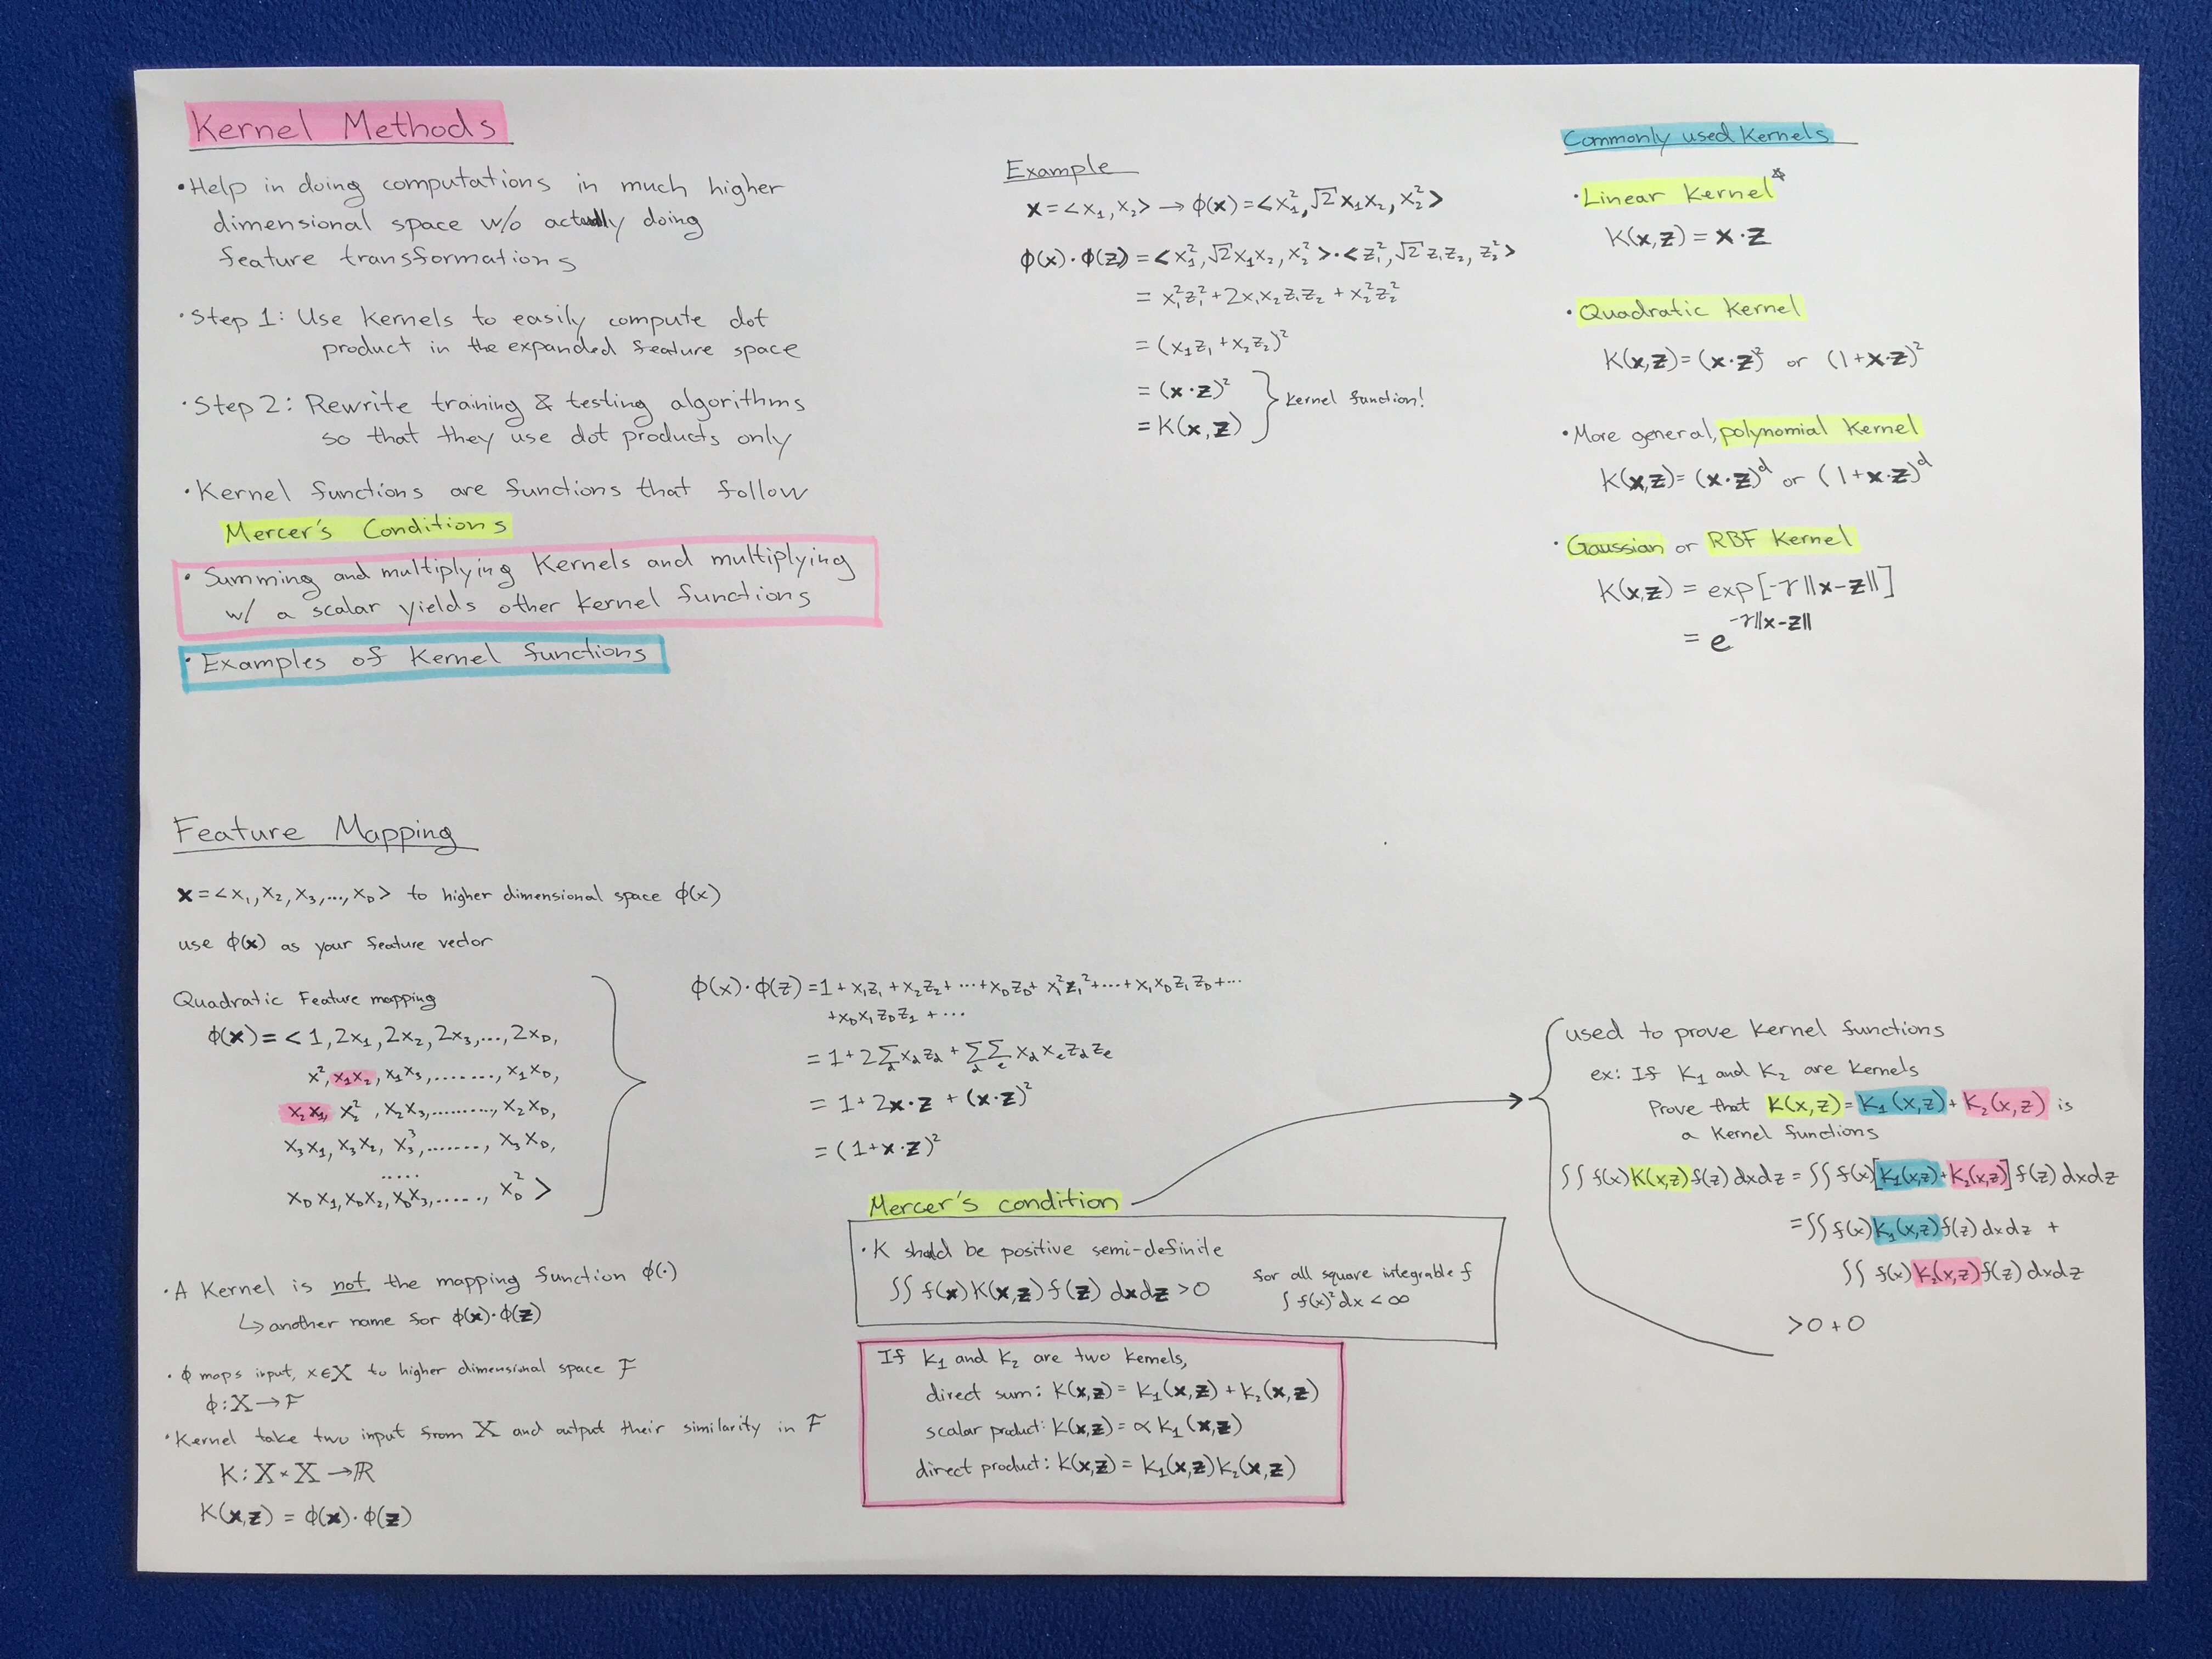 Kernel Methods
• Help in doing computations in much higher
dimensional space w/o actually doing
feature transformations
• Step 1: Use kernels to easily compute dot
product in the expanded feature space
• Step 2: Rewrite training & testing algorithms
so that they use dot products only
• Kernel functions are functions that follow
Mercer's Conditions
• Summing and multiplying Kernels and multiplying
w/ a scalar yields other kernel functions
• Examples of Kernel functions
Example
x = <x₁, x₂> → ϕ(x) = <x₁², √2 x₁x₂, x₂²>
ϕ(x)·ϕ(z) = <x₁², √2 x₁x₂, x₂²>·<z₁², √2 z₁z₂, z₂²>
= x₁²z₁² + 2x₁x₂z₁z₂ + x₂²z₂²
= (x₁z₁ + x₂z₂)²
= (x·z)²
= K(x,z)
kernel function!
Commonly used Kernels
• Linear Kernel*
K(x,z) = x·z
• Quadratic Kernel
K(x,z) = (x·z)² or (1+x·z)²
• More general, polynomial Kernel
K(x,z) = (x·z)ᵈ or (1+x·z)ᵈ
• Gaussian or RBF Kernel
K(x,z) = exp[-γ||x-z||]
= e^(-γ||x-z||)
Feature Mapping
x = <x₁, x₂, x₃, ..., x_D> to higher dimensional space ϕ(x)
use ϕ(x) as your feature vector
Quadratic Feature mapping
ϕ(x) = < 1, 2x₁, 2x₂, 2x₃, ..., 2x_D,
x², x₁x₂, x₁x₃, ........, x₁x_D,
x₂x₁, x₂², x₂x₃, ........., x₂x_D,
x₃x₁, x₃x₂, x₃³, ......., x₃x_D,
.....
x_Dx₁, x_Dx₂, x_Dx₃, ......, x_D² >
ϕ(x)·ϕ(z) = 1 + x₁z₁ + x₂z₂ + ··· + x_Dz_D + x₁²z₁² + ··· + x₁x_Dz₁z_D + ···
+ x_Dx₁z_Dz₁ + ···
= 1 + 2∑_d x_dz_d + ∑_d∑_e x_dx_ez_dz_e
= 1 + 2x·z + (x·z)²
= (1+x·z)²
• A Kernel is not the mapping function ϕ(·)
↳ another name for ϕ(x)·ϕ(z)
• ϕ maps input, x∈X to higher dimensional space F
ϕ: X → F
• Kernel take two input from X and output their similarity in F
K: X × X → ℝ
K(x,z) = ϕ(x)·ϕ(z)
Mercer's condition
• K should be positive semi-definite
∫∫ f(x)K(x,z)f(z) dxdz > 0
for all square integrable f
∫ f(x)² dx < ∞
If K₁ and K₂ are two kernels,
direct sum: K(x,z) = K₁(x,z) + K₂(x,z)
scalar product: K(x,z) = αK₁(x,z)
direct product: K(x,z) = K₁(x,z)K₂(x,z)
used to prove kernel functions
ex: If K₁ and K₂ are kernels
Prove that K(x,z) = K₁(x,z) + K₂(x,z) is
a Kernel functions
∫∫ f(x)K(x,z)f(z) dxdz = ∫∫ f(x)[K₁(x,z)+K₂(x,z)]f(z) dxdz
= ∫∫ f(x)K₁(x,z)f(z) dxdz +
∫∫ f(x)K₂(x,z)f(z) dxdz
> 0 + 0